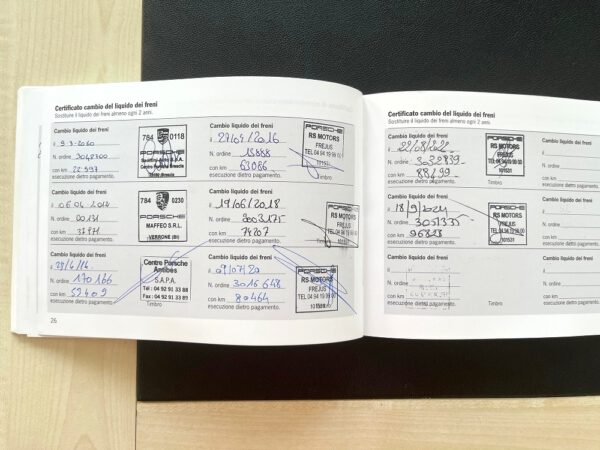 Certificato cambio del liquido dei freni
Sostituire il liquido dei freni almeno ogni 2 anni.
Cambio liquido dei freni
il 9.3.2010
N. ordine
con km
esecuzione dietro pagamento.
784 0118
PORSCHE
Cambio liquido dei freni
il 06.04.2011
N. ordine
con km
esecuzione dietro pagamento.
784 0230
PORSCHE
MAFFEO S.R.L.
VERRONE (BI)
Cambio liquido dei freni
il
N. ordine 170166
con km 59409
esecuzione dietro pagamento.
Centre Porsche
Antibes
S.A.P.A.
Tél : 04 92 91 33 88
Fax : 04 92 91 33 89
Timbro
Cambio liquido dei freni
il 27/05/2016
N. ordine 15888
con km 63086
esecuzione dietro pagamento.
PORSCHE
RS MOTORS
FREJUS
TEL 04 94 19 99 00
101531
Cambio liquido dei freni
il 19/06/2018
N. ordine 3003175
con km 74207
esecuzione dietro pagamento.
PORSCHE
RS MOTORS
FREJUS
101531
Cambio liquido dei freni
il 09/07/20
N. ordine 3016648
con km 80464
esecuzione dietro pagamento.
PORSCHE
RS MOTORS
FREJUS
TEL 04 94 19 99 00
101531
26
Certificato cambio del liquido dei freni
Sostituire il liquido dei freni almeno ogni 2 anni.
Cambio liquido dei freni
il
N. ordine 3029839
con km 88499
esecuzione dietro pagamento.
PORSCHE
RS MOTORS
FREJUS
101531
Cambio liquido dei freni
il 18/9/2024
N. ordine
con km 96828
esecuzione dietro pagamento.
PORSCHE
RS MOTORS
FREJUS
101531
Cambio liquido dei freni
il
N. ordine
con km
esecuzione dietro pagamento.
Timbro
Cambio liquido dei freni
il
N. ordine
con km
esecuzione dietro
Cambio liquido dei freni
il
N. ordine
con km
esecuzione dietro
Cambio liquido dei freni
il
N. ordine
con km
esecuzione dietro